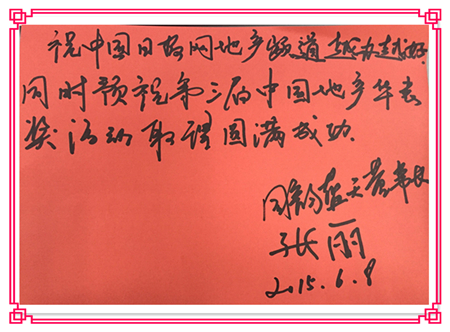 祝中国日报网地产频道越办越好
同时预祝第三届中国地产华表
奖活动取得圆满成功.
蓝天董事长
张丽
2015.6.8